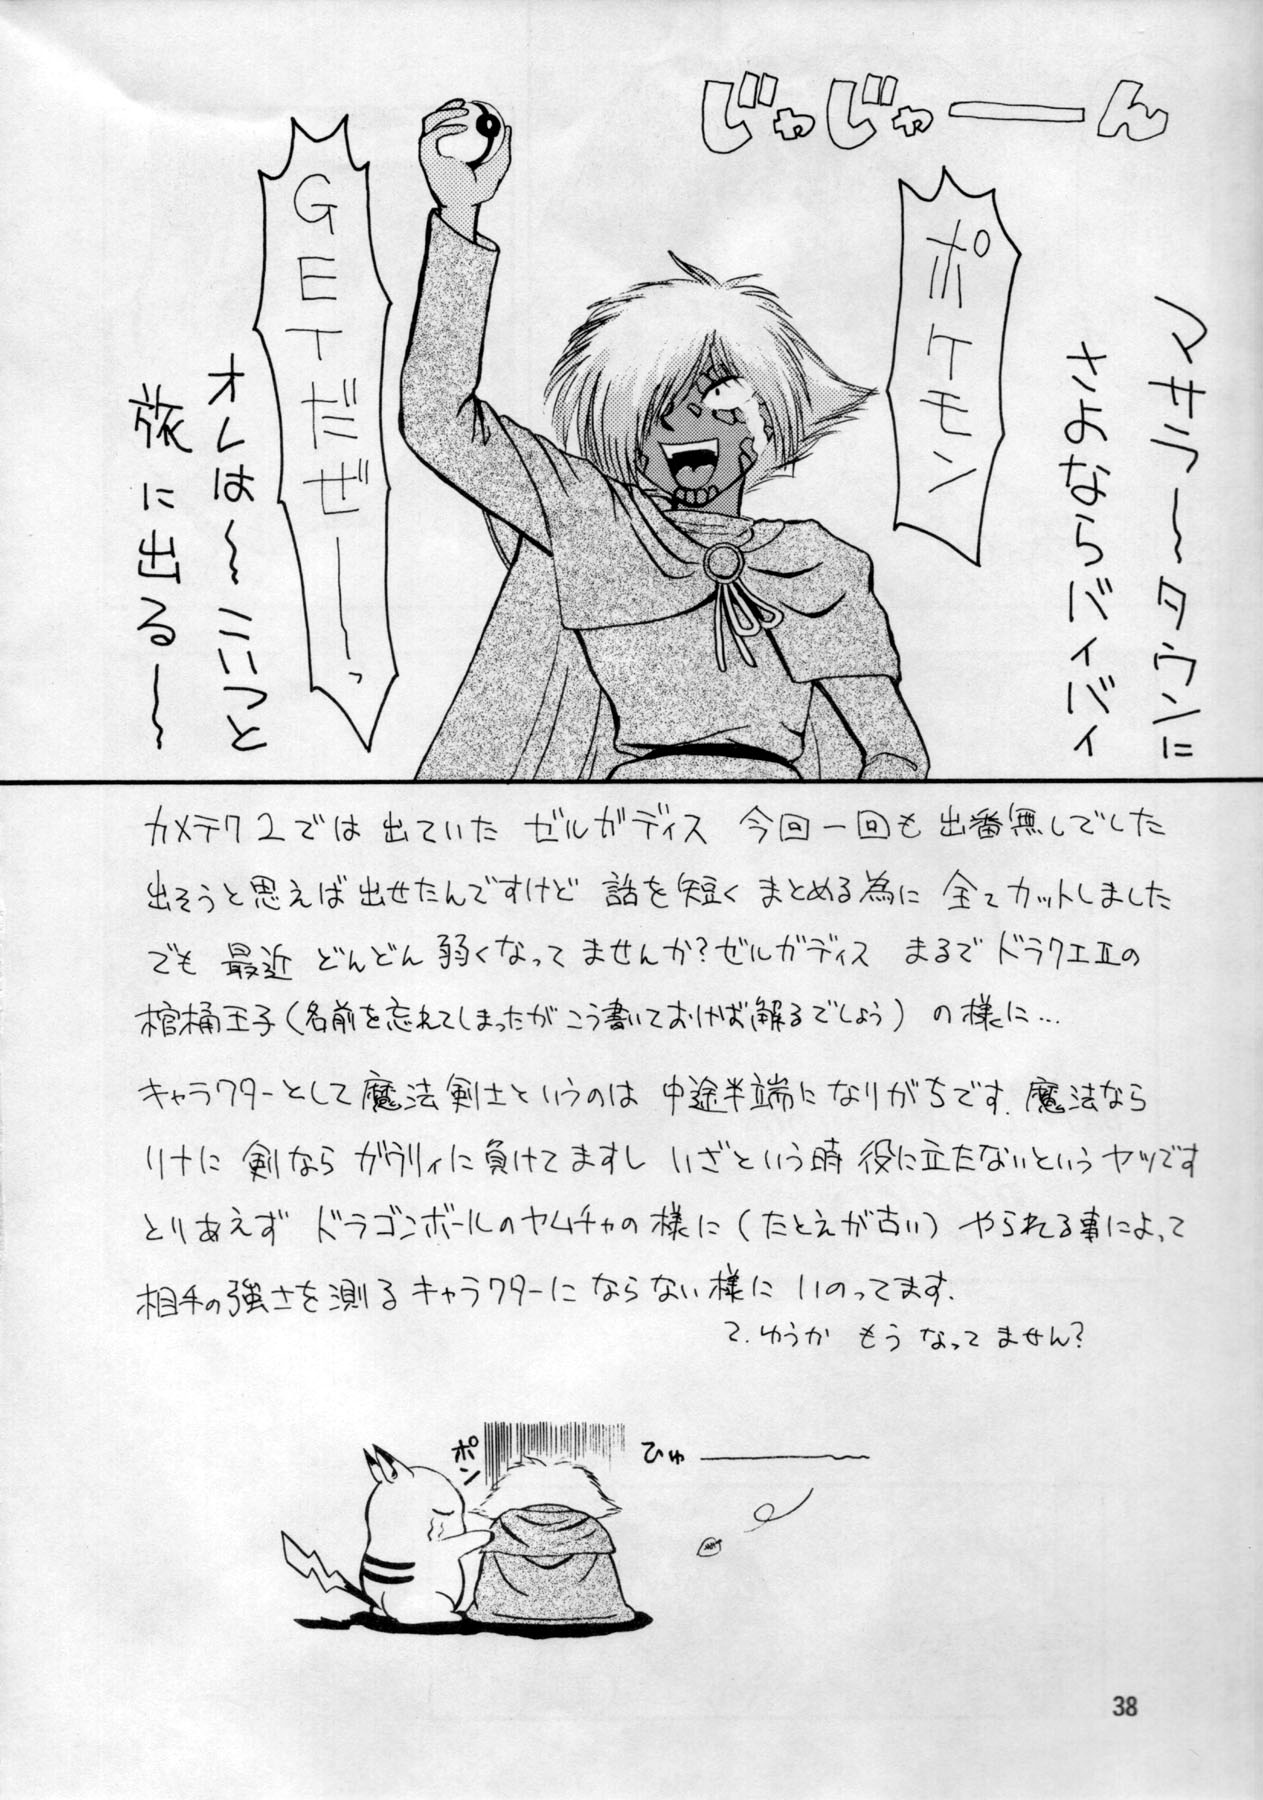 じゃじゃーん
ポケモン
GETだぜーっ
マサラ〜タウンに
さよならバイバイ
オレは〜こいつと
旅に出る〜
カメテク2では出ていた ゼルガディス 今回一回も出番無しでした
出そうと思えば出せたんですけど 話を短くまとめる為に 全てカットしました
でも最近どんどん弱くなってませんか?ゼルガディス まるでドラクエⅡの
棺桶王子(名前を忘れてしまったがこう書いておけば解るでしょう)の様に…
キャラクターとして魔法剣士というのは 中途半端になりがちです.魔法なら
リナに 剣なら ガウリィに負けてますし いざという時役に立たないというヤツです
とりあえず ドラゴンボールのヤムチャの様に(たとえが古い) やられる事によって
相手の強さを測るキャラクターにならない様に いのってます.
て.ゆうか もう なってません?
ポン
ひゅ——〜
38